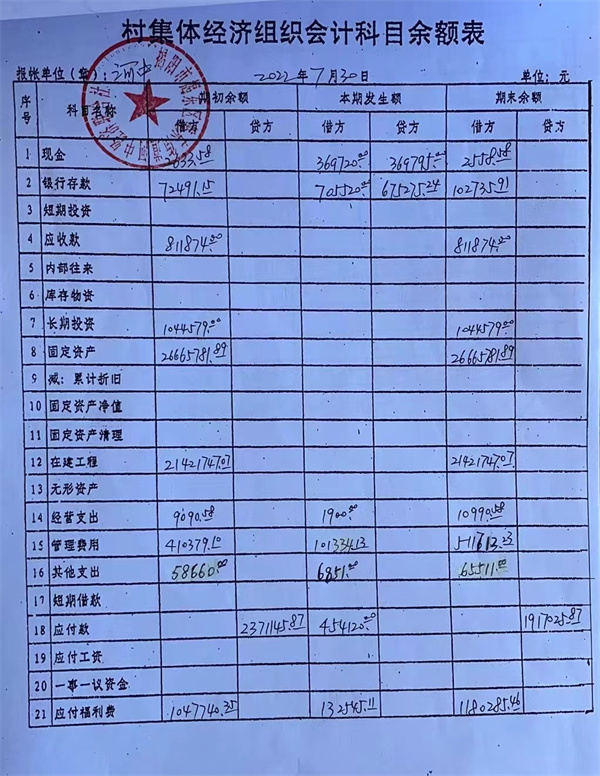 村集体经济组织会计科目余额表
报帐单位(章): 河中 2022年7月30日 单位: 元
序号 科目名称 期初余额 本期发生额 期末余额
借方 贷方 借方 贷方 借方 贷方
1 现金 2633.58 369720.00 369795.00 2558.58
2 银行存款 72491.15 705520.00 675275.24 102735.91
3 短期投资
4 应收款 811874.00 811874.00
5 内部往来
6 库存物资
7 长期投资 1044579.00 1044579.00
8 固定资产 26665781.89 26665781.89
9 减: 累计折旧
10 固定资产净值
11 固定资产清理
12 在建工程 21421747.07 21421747.07
13 无形资产
14 经营支出 9090.58 1900.00 10990.58
15 管理费用 410379.10 101334.13 511713.23
16 其他支出 58660.00 6851.00 65511.00
17 短期借款
18 应付款 2371145.87 454120.00 1917025.87
19 应付工资
20 一事一议资金
21 应付福利费 1047740.35 132545.11 1180285.46